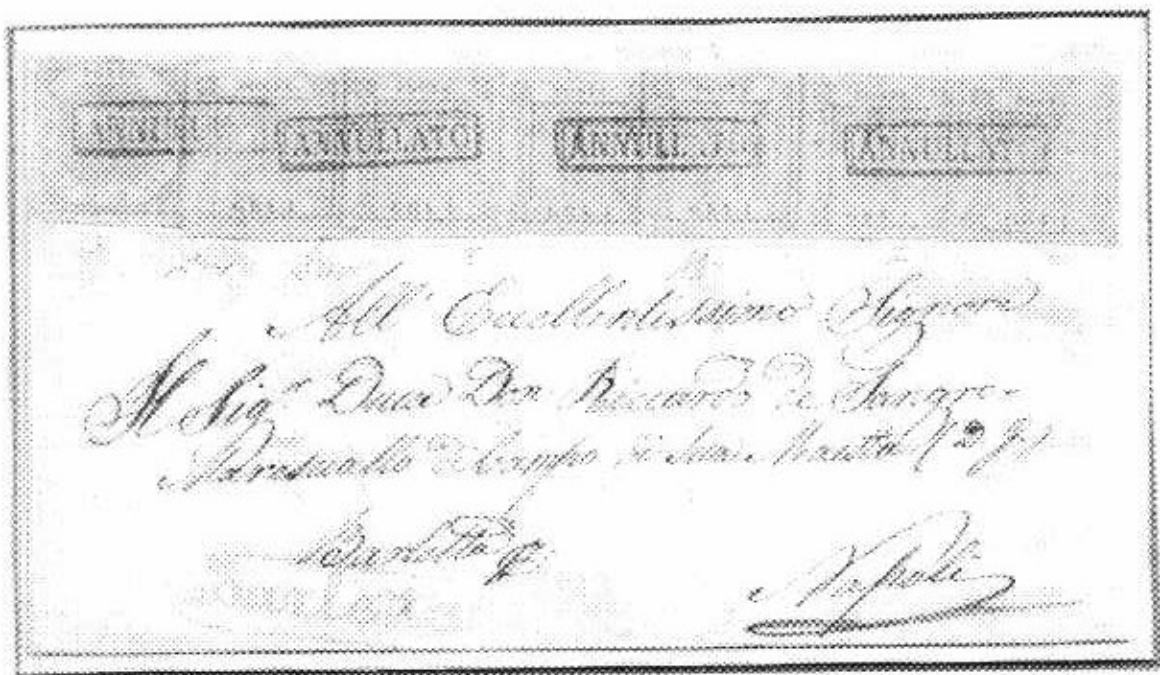 ANNULLATO ANNULLATO ANNULLATO ANNULLATO
All' Eccellentissimo Signore
Il Sig.r Duca Don Riccardo de Sangro
Maresciallo di Campo di Sua Maestà
Barletta p
Napoli